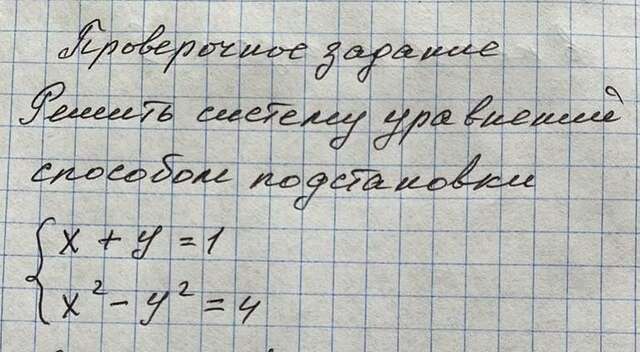 Проверочное задание
Решить систему уравнений
способом подстановки
{x + y = 1
x² - y² = 4